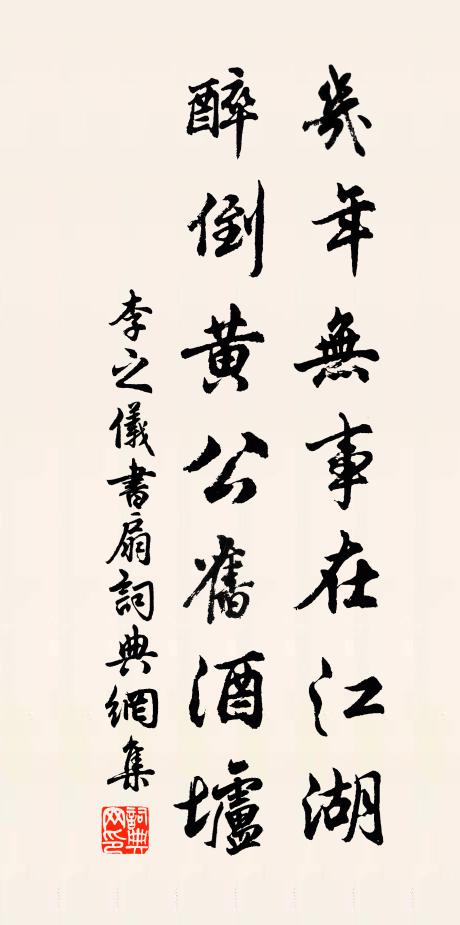 幾年無事在江湖
醉倒黃公舊酒壚
李之儀書扇詞典網集
詞典網印